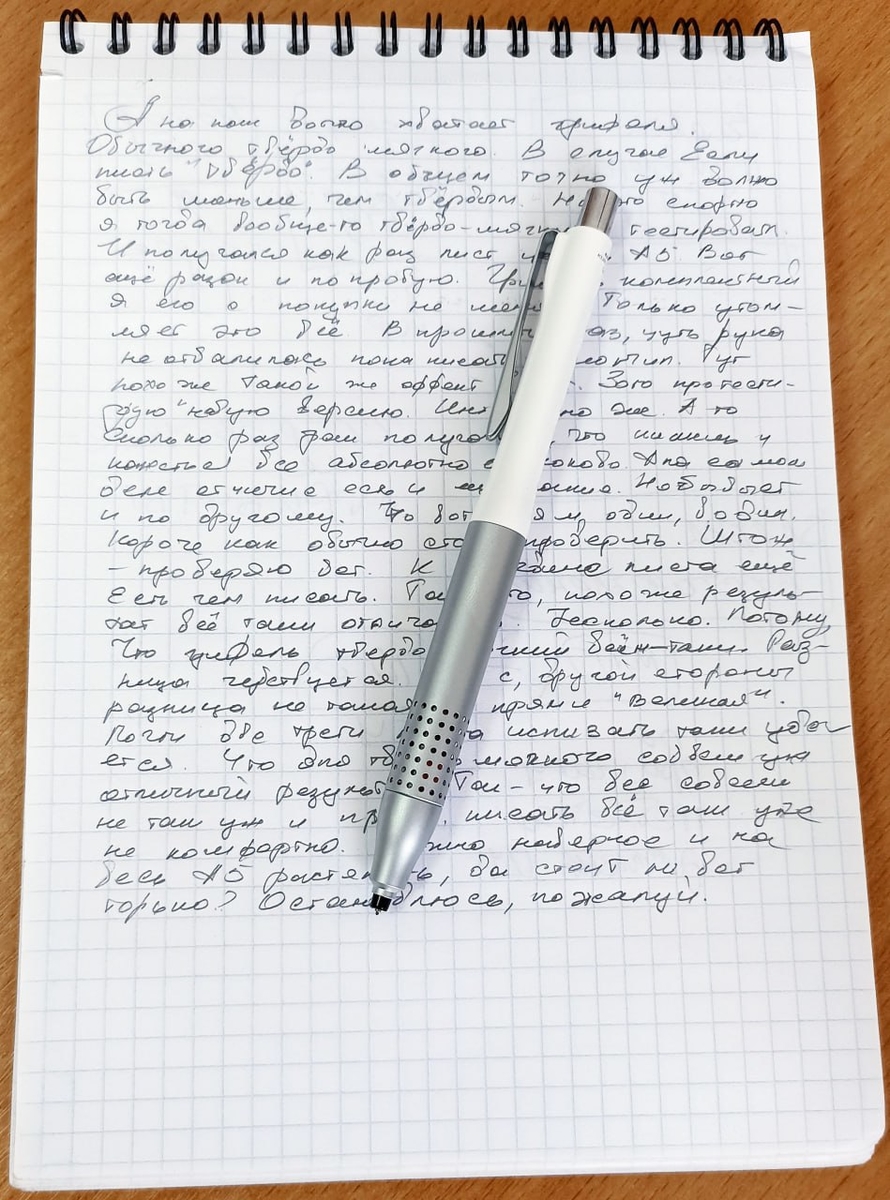 А на как долго хватает грифеля.
Обычного твёрдо мягкого. В случае Если
писать "твёрдо". В общем точно уж должно
быть меньше, чем твёрдым. Но это спорно
я тогда вообще-то твёрдо-мягкий тестировал.
И получался как раз лист А5 Вот
ещё разок и попробую. комплектный
я его с покупки не Только утом-
ляет это всё. В прошлый раз, чуть рука
не отвалилась пока писать
похоже такой же эффект Зато протести-
рую новую версию. же. А то
сколько раз там что пишешь и
кажется всё абсолютно одинаково. Ана самом
деле отличие есть и Но бывает
и по другому. вот один, в один.
Короче как обычно проверить. Што ж
- проверяю вот. К листа ещё
Есть чем писать. похоже резуль-
тат всё таки Несколько. Потому
Что грифель твердо всёж-таки. Раз-
ница чувствуется. С, другой стороны
разница не такая прям и "Великая".
Почти две трети исписать таки уда
ется. Что для мягкого совсем уж
отличный Так-что все совсем
не так уж и писать всё так уже
не комфортно. наверное и на
весь А5 растянуть, да стоит ли вот
только? Остановлюсь, пожалуй.